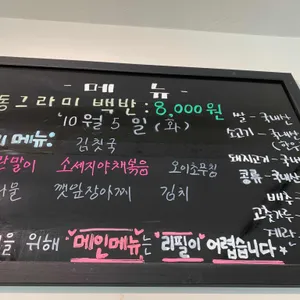 - 메 뉴 -
동그라미 백반 : 8,000원
10월 5일 (화)
메뉴: 김칫국
말이 소세지야채볶음 오이초무침
깻잎장아찌 김치
위해 *메인메뉴는 *리필이 어렵습니다*
쌀 - 국내산
소고기 - 국내산
돼지고기 - 국내산
콩류 - 국내산
배추
고춧가루